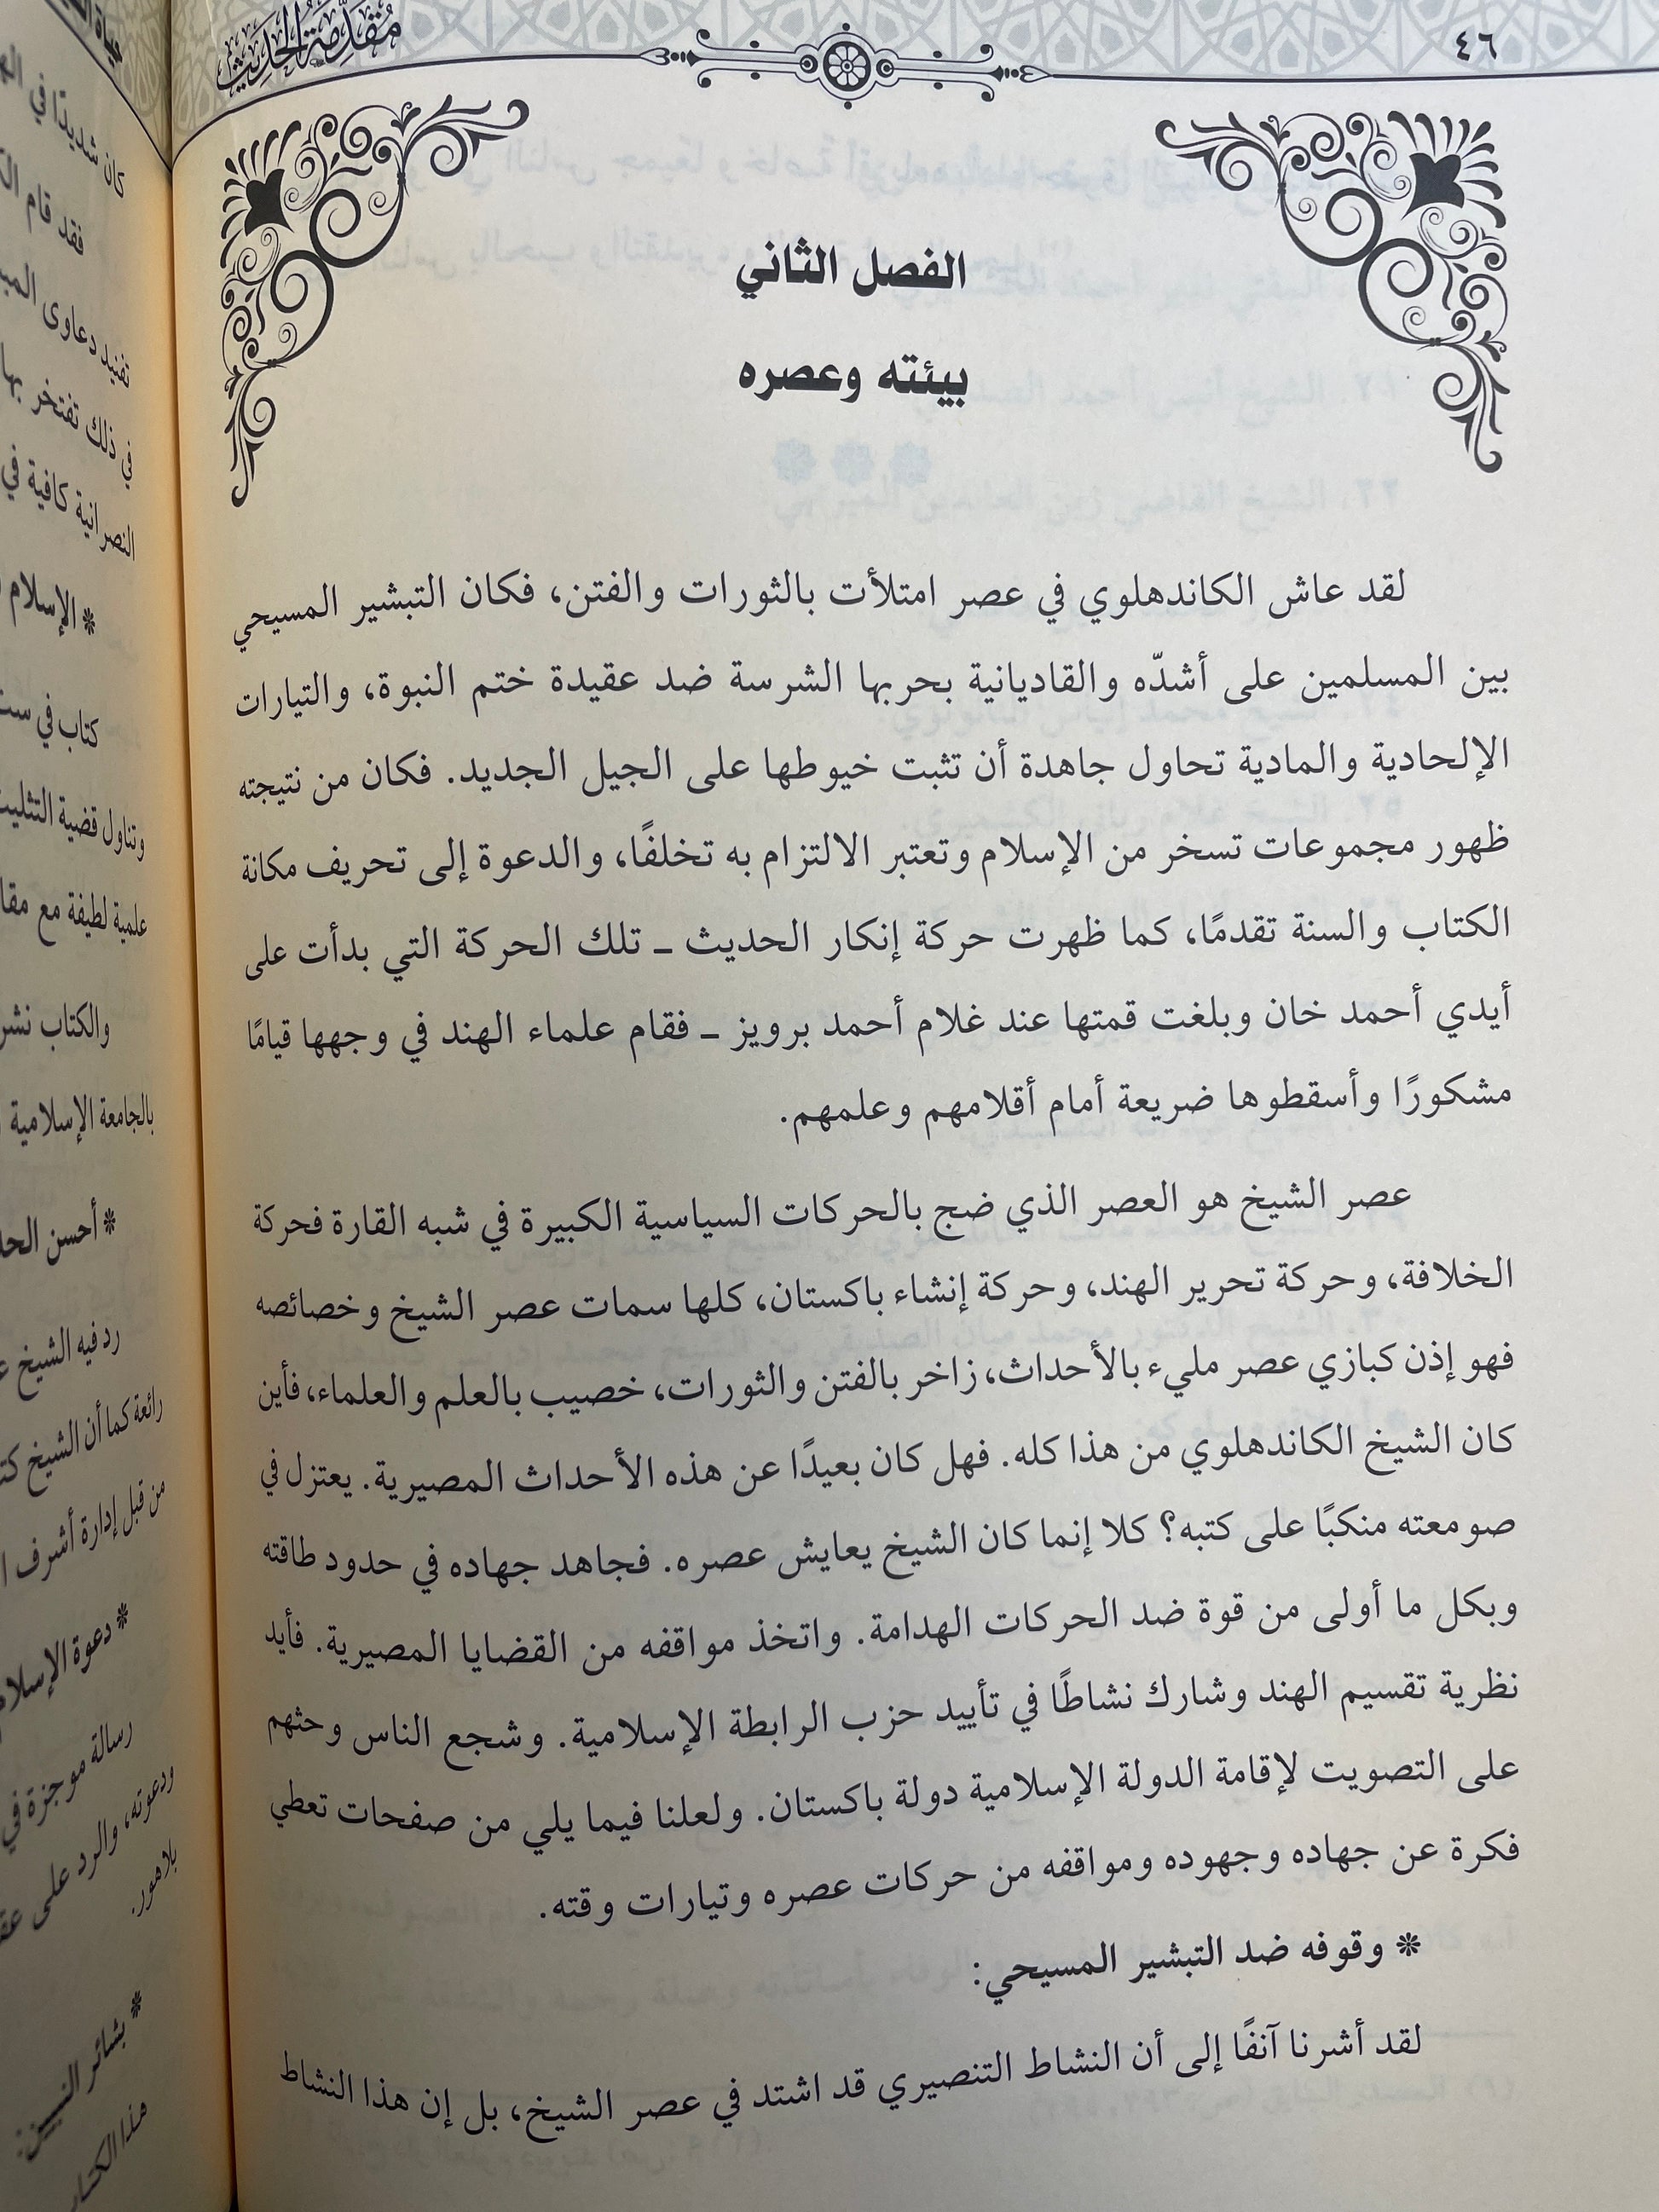 ٤٦
مقدمة الحديث
الفصل الثاني
بيئته وعصره
لقد عاش الكاندهلوي في عصر امتلأت بالثورات والفتن، فكان التبشير المسيحي
بين المسلمين على أشدّه والقاديانية بحربها الشرسة ضد عقيدة ختم النبوة، والتيارات
الإلحادية والمادية تحاول جاهدة أن تثبت خيوطها على الجيل الجديد. فكان من نتيجته
ظهور مجموعات تسخر من الإسلام وتعتبر الالتزام به تخلفًا، والدعوة إلى تحريف مكانة
الكتاب والسنة تقدمًا، كما ظهرت حركة إنكار الحديث ـ تلك الحركة التي بدأت على
أيدي أحمد خان وبلغت قمتها عند غلام أحمد برويز ـ فقام علماء الهند في وجهها قيامًا
مشكورًا وأسقطوها ضريعة أمام أقلامهم وعلمهم.
عصر الشيخ هو العصر الذي ضج بالحركات السياسية الكبيرة في شبه القارة فحركة
الخلافة، وحركة تحرير الهند، وحركة إنشاء باكستان، كلها سمات عصر الشيخ وخصائصه
فهو إذن كبازي عصر مليء بالأحداث، زاخر بالفتن والثورات، خصيب بالعلم والعلماء، فأين
كان الشيخ الكاندهلوي من هذا كله. فهل كان بعيدًا عن هذه الأحداث المصيرية. يعتزل في
صومعته منكبًا على كتبه؟ كلا إنما كان الشيخ يعايش عصره. فجاهد جهاده في حدود طاقته
وبكل ما أولى من قوة ضد الحركات الهدامة. واتخذ مواقفه من القضايا المصيرية. فأيد
نظرية تقسيم الهند وشارك نشاطًا في تأييد حزب الرابطة الإسلامية. وشجع الناس وحثهم
على التصويت لإقامة الدولة الإسلامية دولة باكستان. ولعلنا فيما يلي من صفحات تعطي
فكرة عن جهاده وجهوده ومواقفه من حركات عصره وتيارات وقته.
* وقوفه ضد التبشير المسيحي:
لقد أشرنا آنفًا إلى أن النشاط التنصيري قد اشتد في عصر الشيخ، بل إن هذا النشاط
كان شديدًا في
فقد قام
تفنيد دعاوى
في ذلك تفتخر بها
النصرانية كافية في
* الإسلام
كتاب في
وتناول قضية
علمية لطيفة مع
والكتاب نشر
بالجامعة الإسلامية
* أحسن
رد فيه الشيخ
رائعة كما أن الشيخ
من قبل إدارة أشرف
* دعوة
رسالة موجزة في
ودعوته، والرد على
بلاهور.
* بشائر النبيين:
هذا